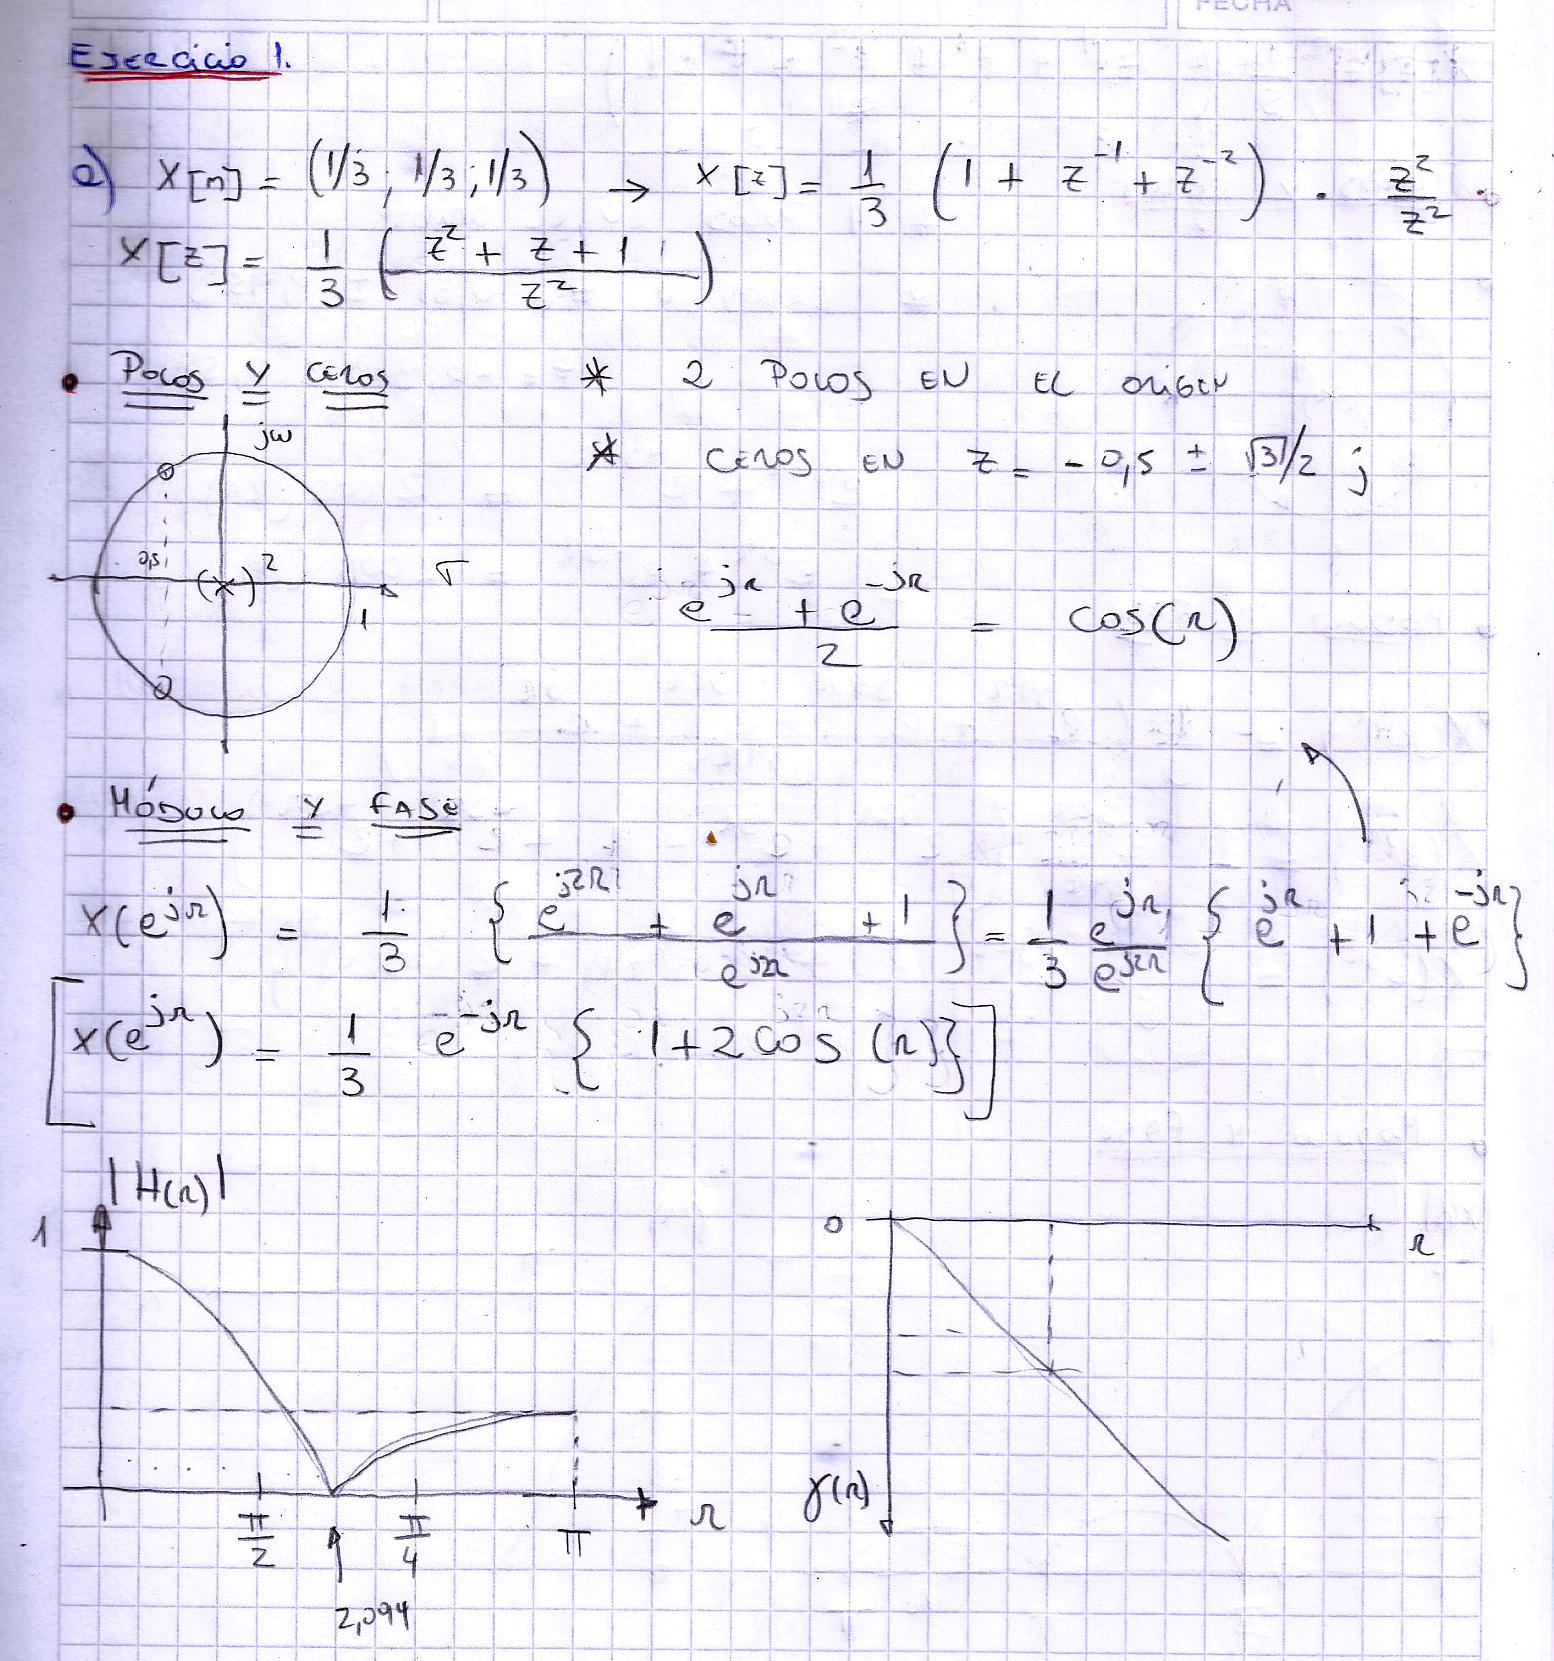 FECHA
Ejercicio 1.
a) X[n] = (1/3 ; 1/3 ; 1/3) → X[z] = 1/3 (1 + z^-1 + z^-2) . z^2/z^2
X[z] = 1/3 ( (z^2 + z + 1) / z^2 )
• Polos y ceros * 2 Polos EN EL origen
* ceros EN z = -0,5 ± √3/2 j
jω
0,5 (×)^2 1 σ
(e^jΩ + e^-jΩ) / 2 = cos(Ω)
• Módulo y fase
X(e^jΩ) = 1/3 { (e^j2Ω + e^jΩ + 1) / e^j2Ω } = 1/3 e^jΩ/e^j2Ω { e^jΩ + 1 + e^-jΩ }
[ X(e^jΩ) = 1/3 e^-jΩ { 1 + 2 cos (Ω) } ]
|H(Ω)|
1
π/2 π/4 π Ω
2,094
0 Ω
γ(Ω)